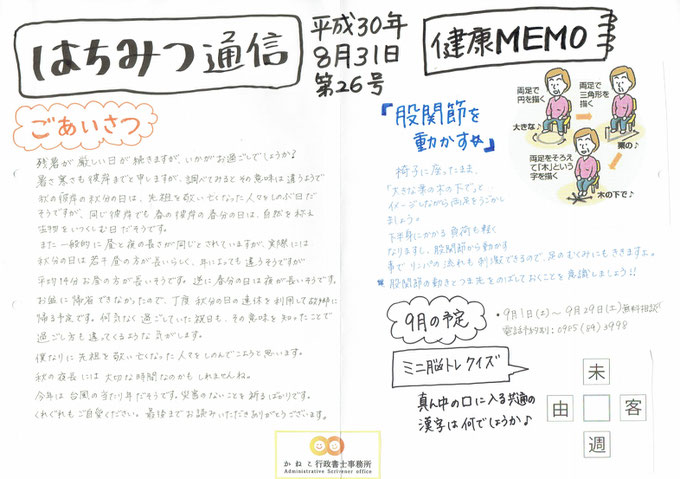 はちみつ通信
平成30年
8月31日
第26号
ごあいさつ
残暑が厳しい日が続きますが、いかがお過ごしでしょうか?
暑さ寒さも彼岸までと申しますが、調べてみるとその意味は違うようで
秋の彼岸の秋分の日は、先祖を敬い亡くなった人々をしのぶ日だ
そうですが、同じ彼岸でも春の彼岸の春分の日は、自然を称え
生物をいつくしむ日だそうです。
また一般的に昼と夜の長さが同じとされていますが、実際には
秋分の日は若干昼の方が長いらしく、年によっても違うそうですが
平均14分お昼の方が長いそうです。逆に春分の日は夜が長いそうです。
お盆に帰省できなかったので、丁度秋分の日の連休を利用して故郷に
帰る予定です。何気なく過ごしていた祝日も、その意味を知ったことで
過ごし方も違ってくるような気がします。
僕なりに先祖を敬い亡くなった人々をしのんでこようと思います。
秋の夜長には大切な時間なのかもしれませんね。
今年は台風の当たり年だそうです。災害のないことを祈るばかりです。
くれぐれもご自愛ください。最後までお読みいただきありがとうございます。
かねこ行政書士事務所
Administrative Scrivener office
健康MEMO
『股関節を
動かす』
両足で
円を描く
大きな♪
両足で
三角形を
描く
栗の♪
両足をそろえ
て「木」という
字を描く
木の下で♪
椅子に座ったまま、
「大きな栗の木の下で」って
イメージしながら両足をうごかし
ましょう。
下半身にかかる負荷も軽く
なりますし、股関節から動かす
事でリンパの流れも刺激できるので、足のむくみにもききますよ。
股関節の動きとつま先をのばしておくことを意識しましょう!!
9月の予定
・9月1日(土)〜9月29日(土)無料相談
電話予約: 0905(84)3998
ミニ脳トレクイズ
真ん中の口に入る共通の
漢字は何でしょうか♪
未
由
客
週